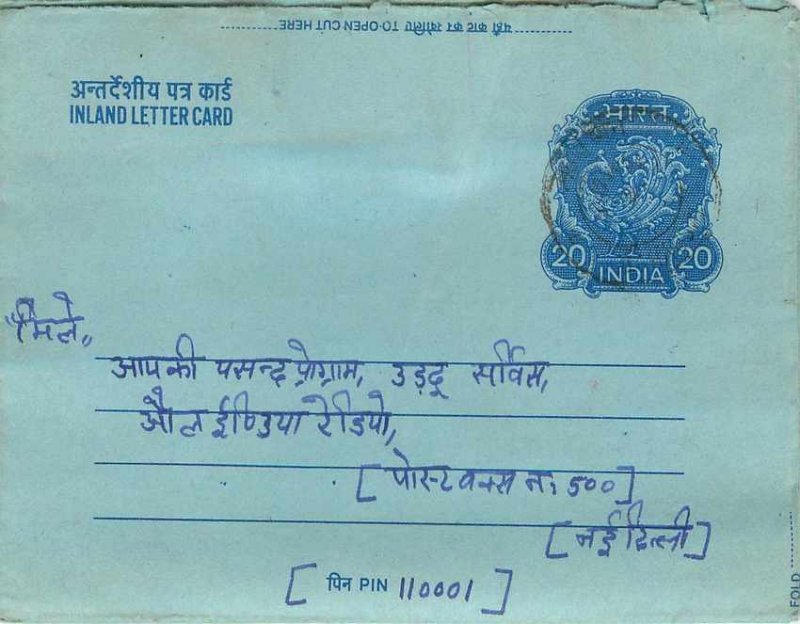 यहाँ काट कर खोलिए TO OPEN CUT HERE
अन्तर्देशीय पत्र कार्ड
INLAND LETTER CARD
भारत
20 20
INDIA
"मिले"
आपकी पसन्द प्रोग्राम, उड़दू सर्विस,
औल ईण्डिया रेडियो,
[पोस्ट बक्स नः 500]
[नई दिल्ली]
[पिन PIN 110001]
FOLD